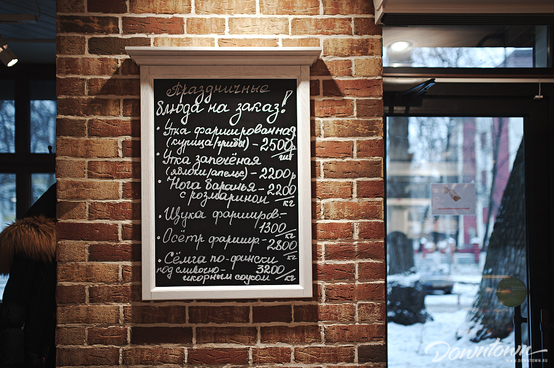 Праздничные
блюда на заказ!
• Утка фаршированная
(курица/грибы) - 2500р
шт
• Утка запечёная
(яблоки/апельс) - 2200р
• Нога баранья - 2200
с розмарином кг
• Щука фарширов. -
1300
кг
• Осётр фаршир. -
2800
кг
• Сёмга по-фински
под сливочно- 3200
икорным соусом кг
Downtown
WWW.DOWNTOWN.RU